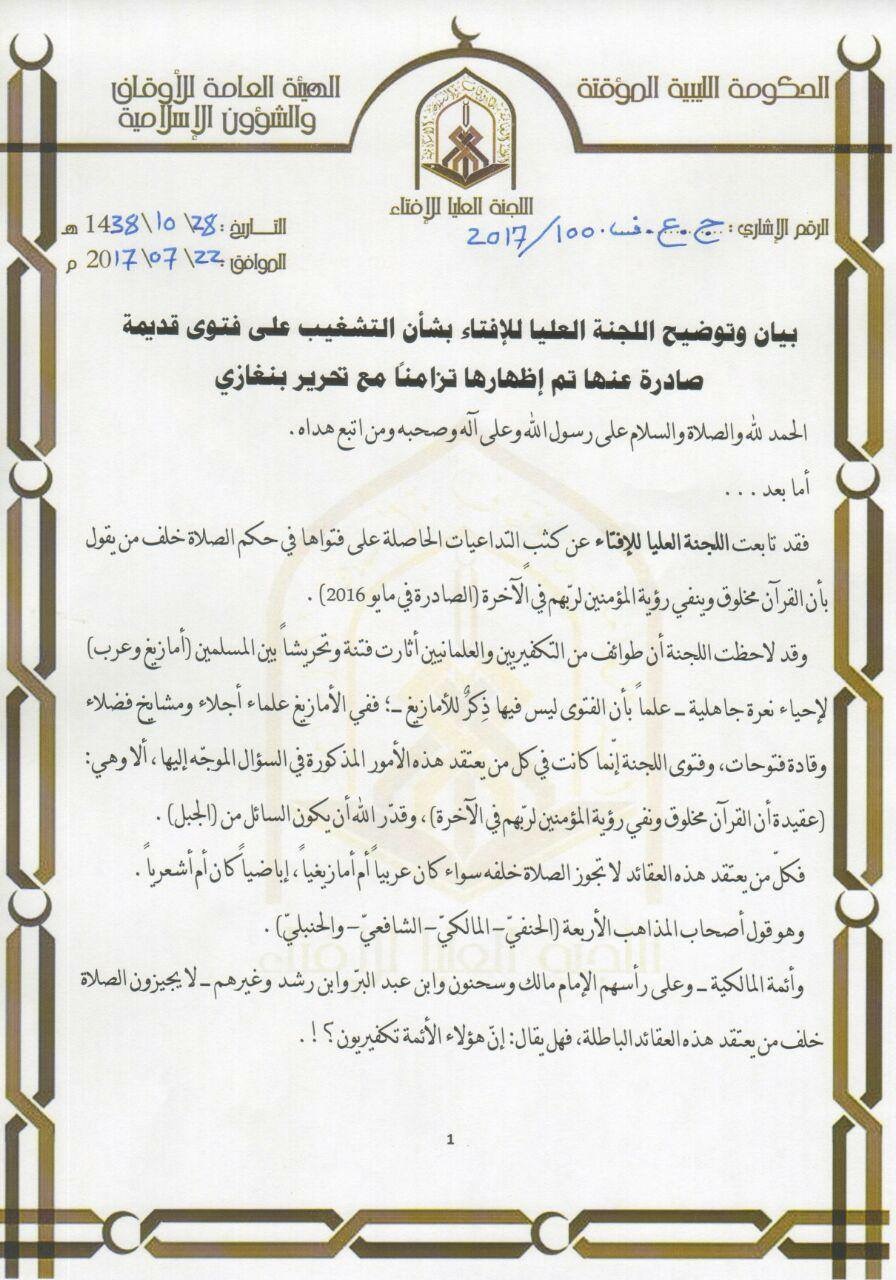 الحكومة الليبية المؤقتة
الهيئة العامة للأوقاف
والشؤون الإسلامية
اللجنة العليا للإفتاء
الرقم الإشاري : ج.ع.فسا.100/2017
التـــاريخ : 28\10\1438 هـ
الموافق : 22\07\2017 م
بيان وتوضيح اللجنة العليا للإفتاء بشأن التشغيب على فتوى قديمة
صادرة عنها تم إظهارها تزامناً مع تحرير بنغازي
الحمد لله والصلاة والسلام على رسول الله وعلى آله وصحبه ومن اتبع هداه .
أما بعد . . .
فقد تابعت اللجنة العليا للإفتاء عن كثب التداعيات الحاصلة على فتواها في حكم الصلاة خلف من يقول
بأن القرآن مخلوق وينفي رؤية المؤمنين لربّهم في الآخرة (الصادرة في مايو 2016) .
وقد لاحظت اللجنة أن طوائف من التكفيريين والعلمانيين أثارت فتنة وتحريشاً بين المسلمين (أمازيغ وعرب)
لإحياء نعرة جاهلية ـ علماً بأن الفتوى ليس فيها ذِكرٌ للأمازيغ ـ؛ ففي الأمازيغ علماء أجلاء ومشايخ فضلاء
وقادة فتوحات، وفتوى اللجنة إنّما كانت في كل من يعتقد هذه الأمور المذكورة في السؤال الموجّه إليها ، ألا وهي:
(عقيدة أن القرآن مخلوق ونفي رؤية المؤمنين لربّهم في الآخرة) ، وقدّر الله أن يكون السائل من (الجبل) .
فكلّ من يعتقد هذه العقائد لا تجوز الصلاة خلفه سواء كان عربياً أم أمازيغياً ، إباضياً كان أم أشعرياً .
وهو قول أصحاب المذاهب الأربعة (الحنفيّ– المالكيّ– الشافعيّ– والحنبليّ) .
وأئمة المالكية ـ وعلى رأسهم الإمام مالك وسحنون وابن عبد البرّ وابن رشد وغيرهم ـ لا يجيزون الصلاة
خلف من يعتقد هذه العقائد الباطلة، فهل يقال: إنّ هؤلاء الأئمة تكفيريون ؟ ! .
1